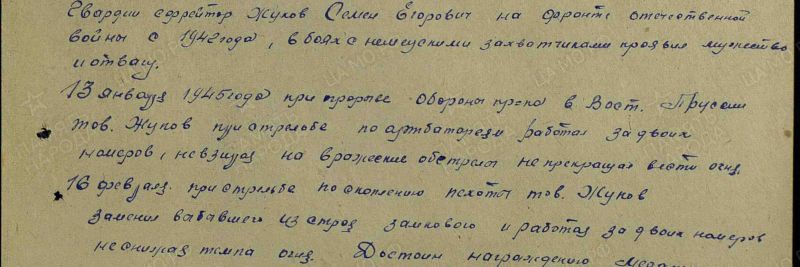 Гвардии ефрейтор Жуков Семен Егорович на фронте отечественной
войны с 1942 года, в боях с немецкими захватчиками проявил мужество
и отвагу.
13 января 1945 года при прорыве обороны пр-ка в Вост. Пруссии
тов. Жуков при стрельбе по артбатареям работал за двоих
номеров, невзирая на вражеские обстрелы не прекращал вести огня.
16 февраля при стрельбе по скоплению пехоты тов. Жуков
заменил выбывшего из строя замкового и работал за двоих номеров
не снижая темпа огня. Достоин награждению